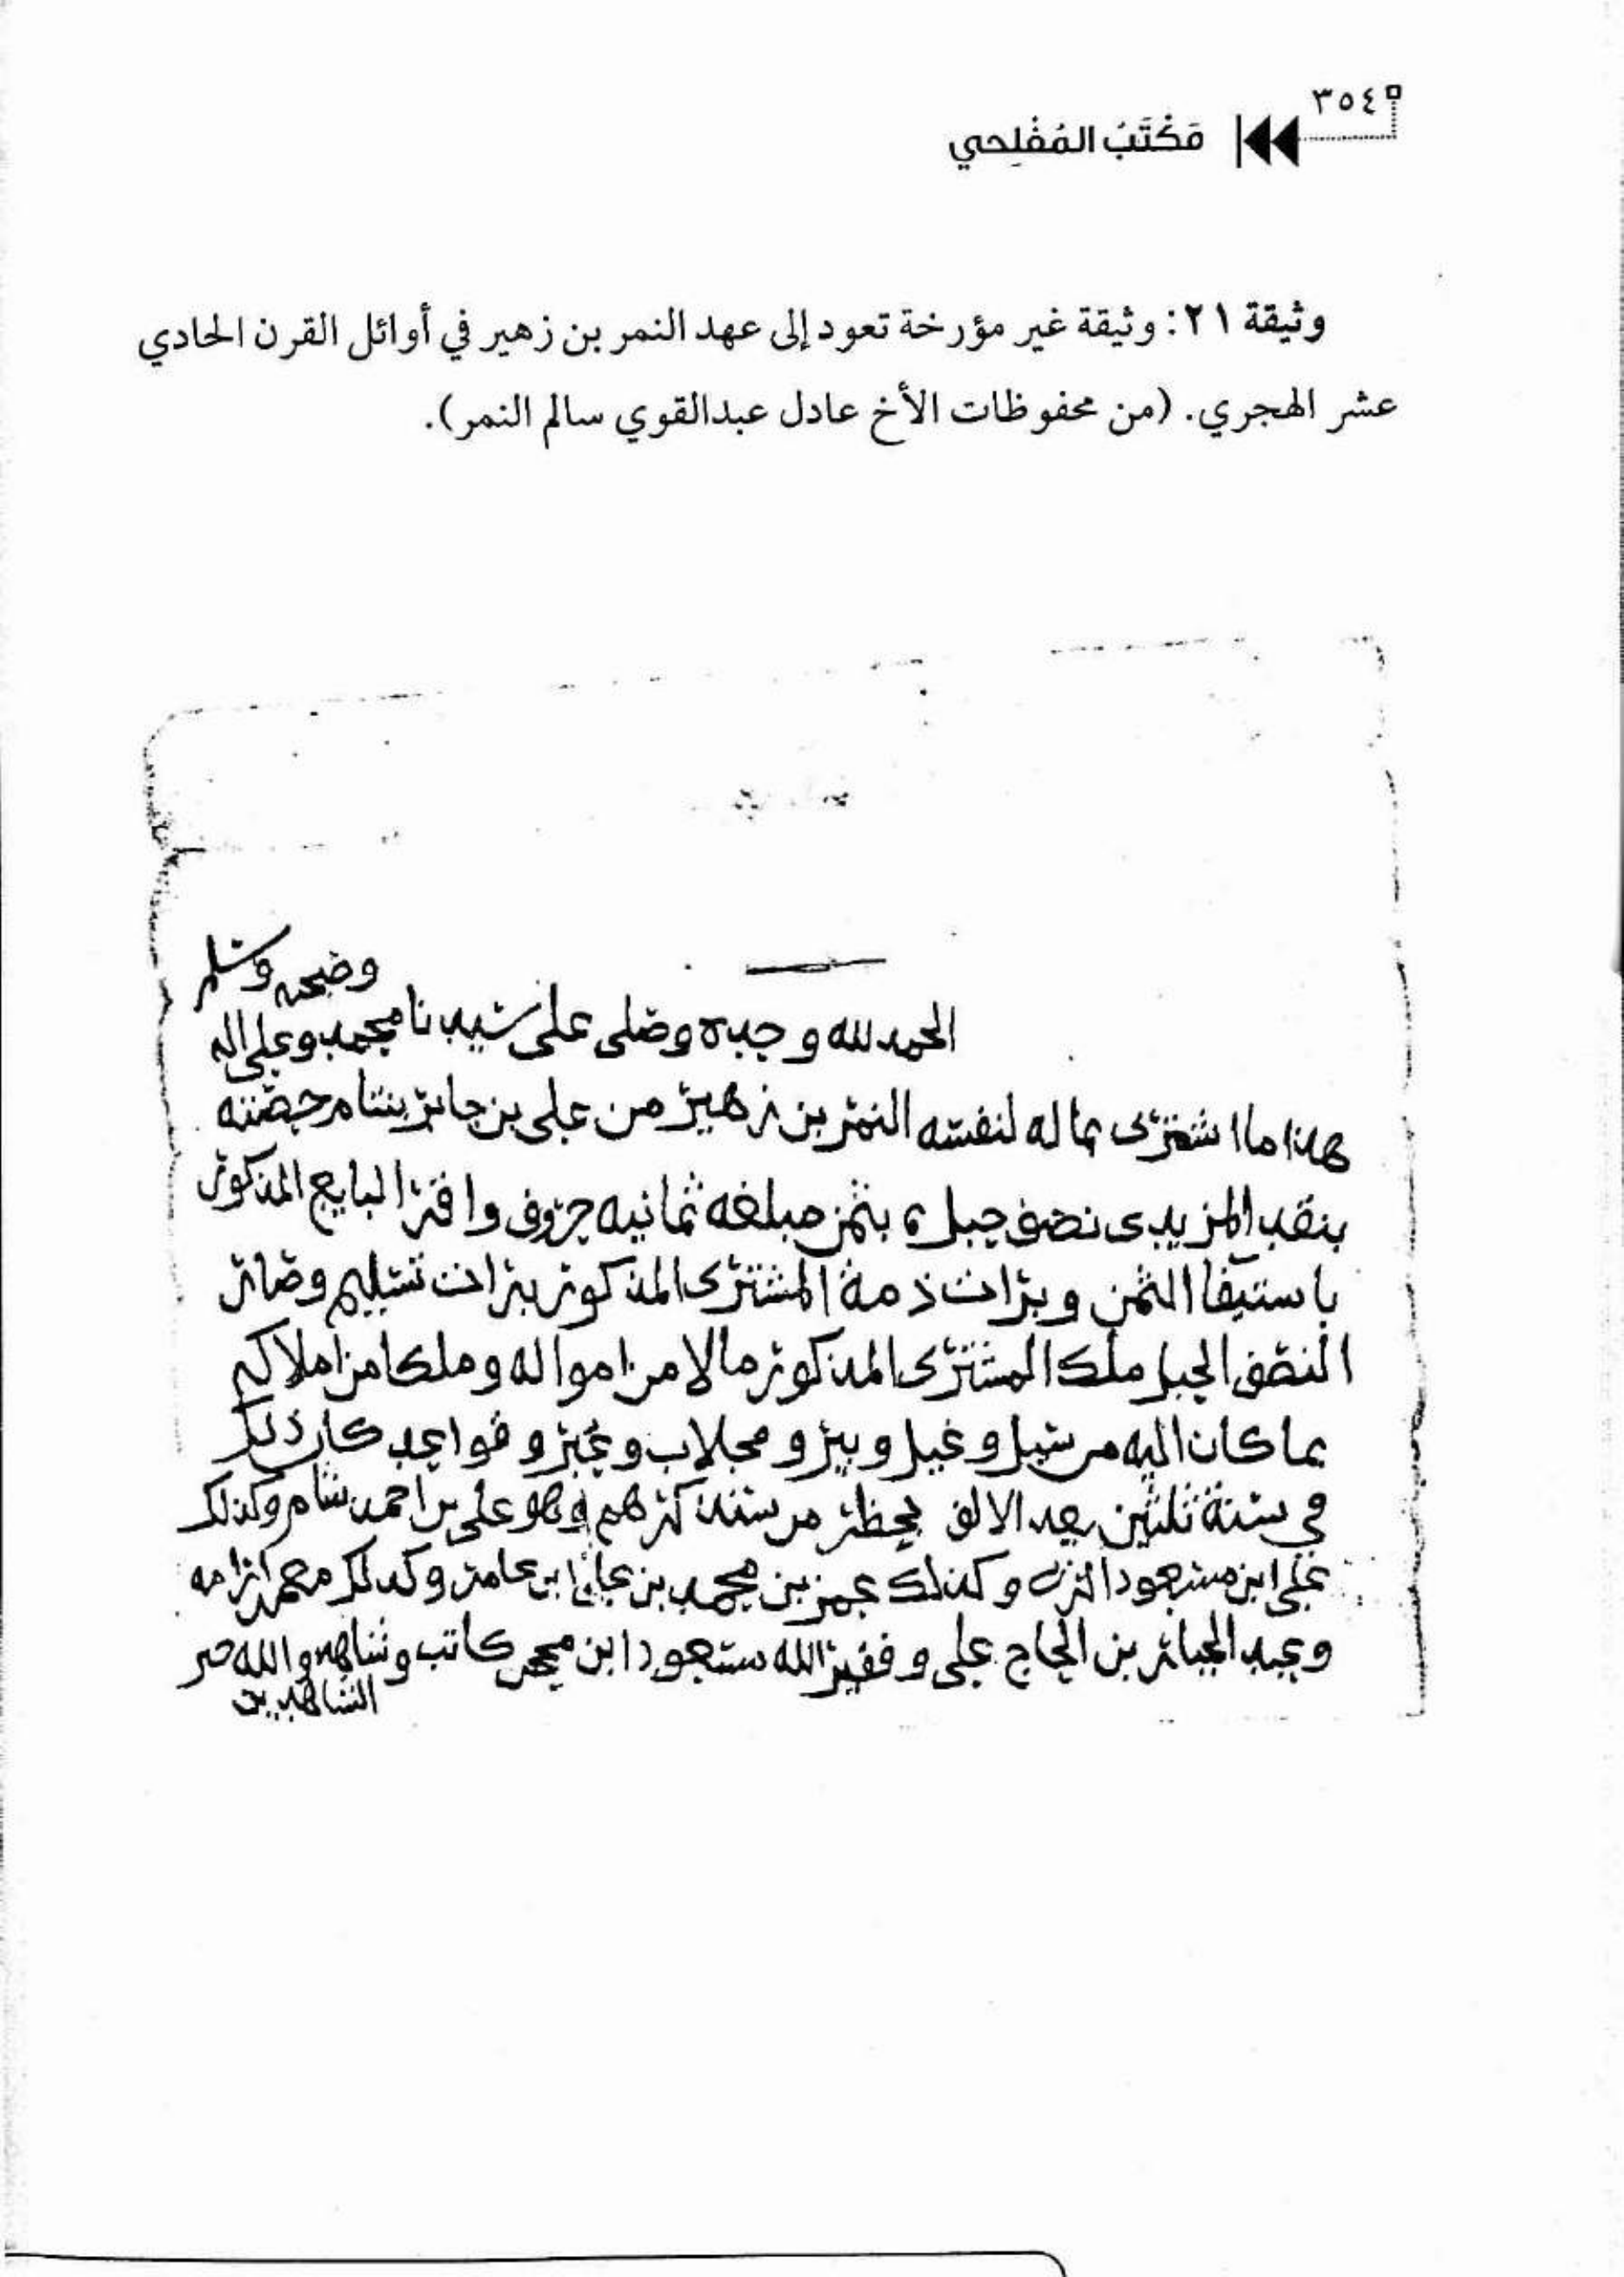 ٣٥٤
مَكْتَبُ المُفْلِحي
وثيقة ٢١: وثيقة غير مؤرخة تعود إلى عهد النمر بن زهير في أوائل القرن الحادي
عشر الهجري. (من محفوظات الأخ عادل عبدالقوي سالم النمر).
وصحبه وسلم
الحمد لله وحده وصلى على سيدنا محمد وعلى اله
هذا ما اشترى بماله لنفسه النمر بن زهير من علي بن جابر بنتام حصته
بنقد المزيدى نصف جبل بثمن مبلغه ثمانيه حروف واقر البايع المذكور
باستيفا الثمن وبرات ذمة المشترى المذكور برات تسليم وصار
النصف الجبل ملك المشترى المذكور مالا من امواله وملكا من املاكه
بما كان اليه من سبل وغيل وبير ومحلاب وقواعد كان ذلك
في سنة ثلثين بعد الالف بحظر من وهو علي بن احمد بنتام وكذلك
علي ابن مسعود وكذلك عمر بن محمد بن ابن عامر وكذلك محمد
وعبد الجبار بن الحاج علي وفقير الله سعود ابن محمد كاتب وشاهد والله خير
الشاهدين